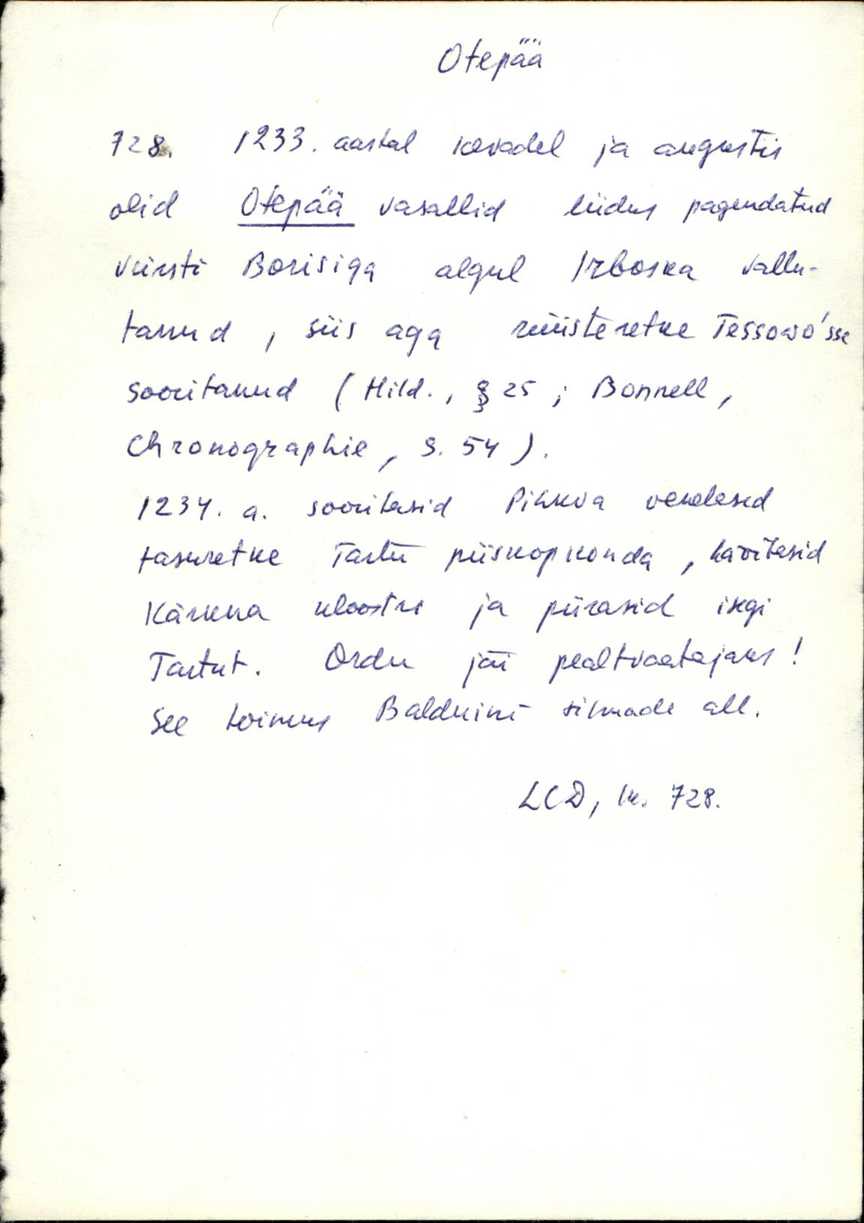 Otepää
728. 1233. aastal kevadel ja augustis
olid Otepää vasallid liidus pagendatud
vürsti Borisiga algul Irboska vallu-
tanud, siis aga rüüsteretke Tessowo'sse
sooritanud (Hild., § 25; Bonnell,
Chronographie, S. 54).
1234. a. sooritasid Pihkva venelased
tasuretke Tartu piiskopkonda, hävitasid
Kärkna kloostri ja piirasid isegi
Tartut. Ordu jäi pealtvaatajaks!
See toimus Balduini silmade all.
LCD, lk. 728.